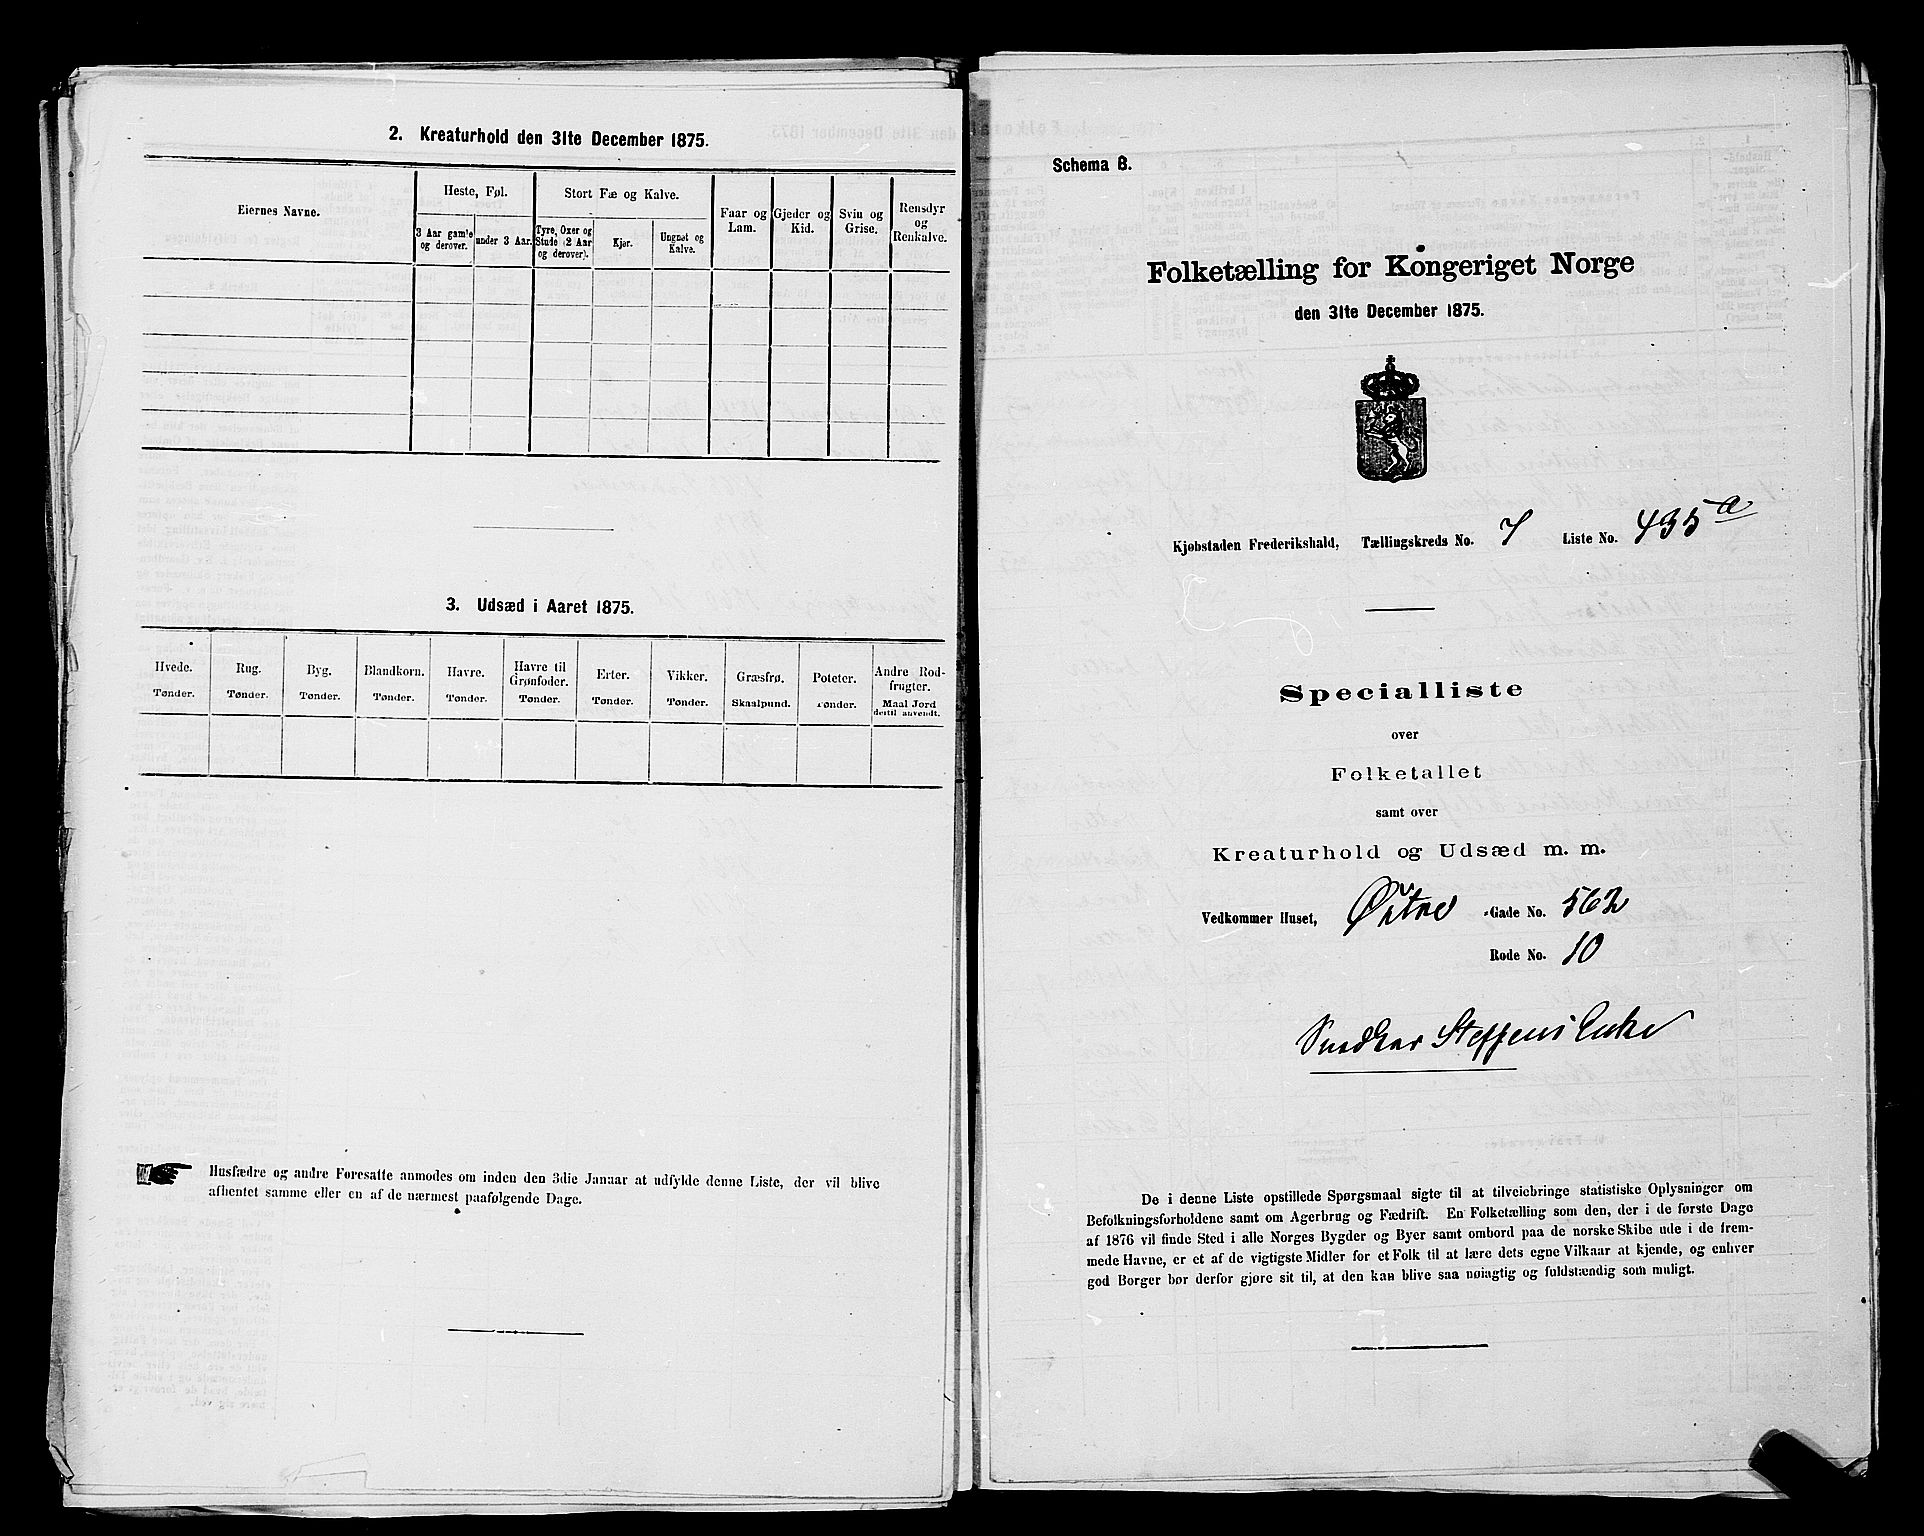 2. Kreaturhold den 31te December 1875.
Eiernes Navne.
Heste, Føl.
Stort Fæ og Kalve.
Faar og Lam.
Gjeder og Kid.
Svin og Grise.
Rensdyr og Renkalve.
3 Aar gamle og derover.
under 3 Aar.
Tyre, Oxer og Stude (2 Aar og derover).
Kjør.
Ungnøt og Kalve.
3. Udsæd i Aaret 1875.
Hvede. Rug. Byg. Blandkorn. Havre. Havre til Grønfoder. Erter. Vikker. Græsfrø. Poteter. Andre Rodfrugter.
Tønder. Tønder. Tønder. Tønder. Tønder. Tønder. Tønder. Tønder. Skaalpund. Tønder. Maal Jord dertil anvendt.
Husfædre og andre Foresatte anmodes om inden den 3die Januar at udfylde denne Liste, der vil blive
afhentet samme eller en af de nærmest paafølgende Dage.
Schema B.
Folketælling for Kongeriget Norge
den 31te December 1875.
Kjøbstaden Frederikshald, Tællingskreds No. 7 Liste No. 435 a
Specialliste
over
Folketallet
samt over
Kreaturhold og Udsæd m. m.
Vedkommer Huset, Østre -Gade No. 562
Rode No. 10
Snedker Steffens Enke
De i denne Liste opstillede Spørgsmaal sigte til at tilveiebringe statistiske Oplysninger om
Befolkningsforholdene samt om Agerbrug og Fædrift. En Folketælling som den, der i de første Dage
af 1876 vil finde Sted i alle Norges Bygder og Byer samt ombord paa de norske Skibe ude i de frem-
mede Havne, er et af de vigtigste Midler for et Folk til at lære dets egne Vilkaar at kjende, og enhver
god Borger bør derfor gjøre sit til, at den kan blive saa nøiagtig og fuldstændig som muligt.